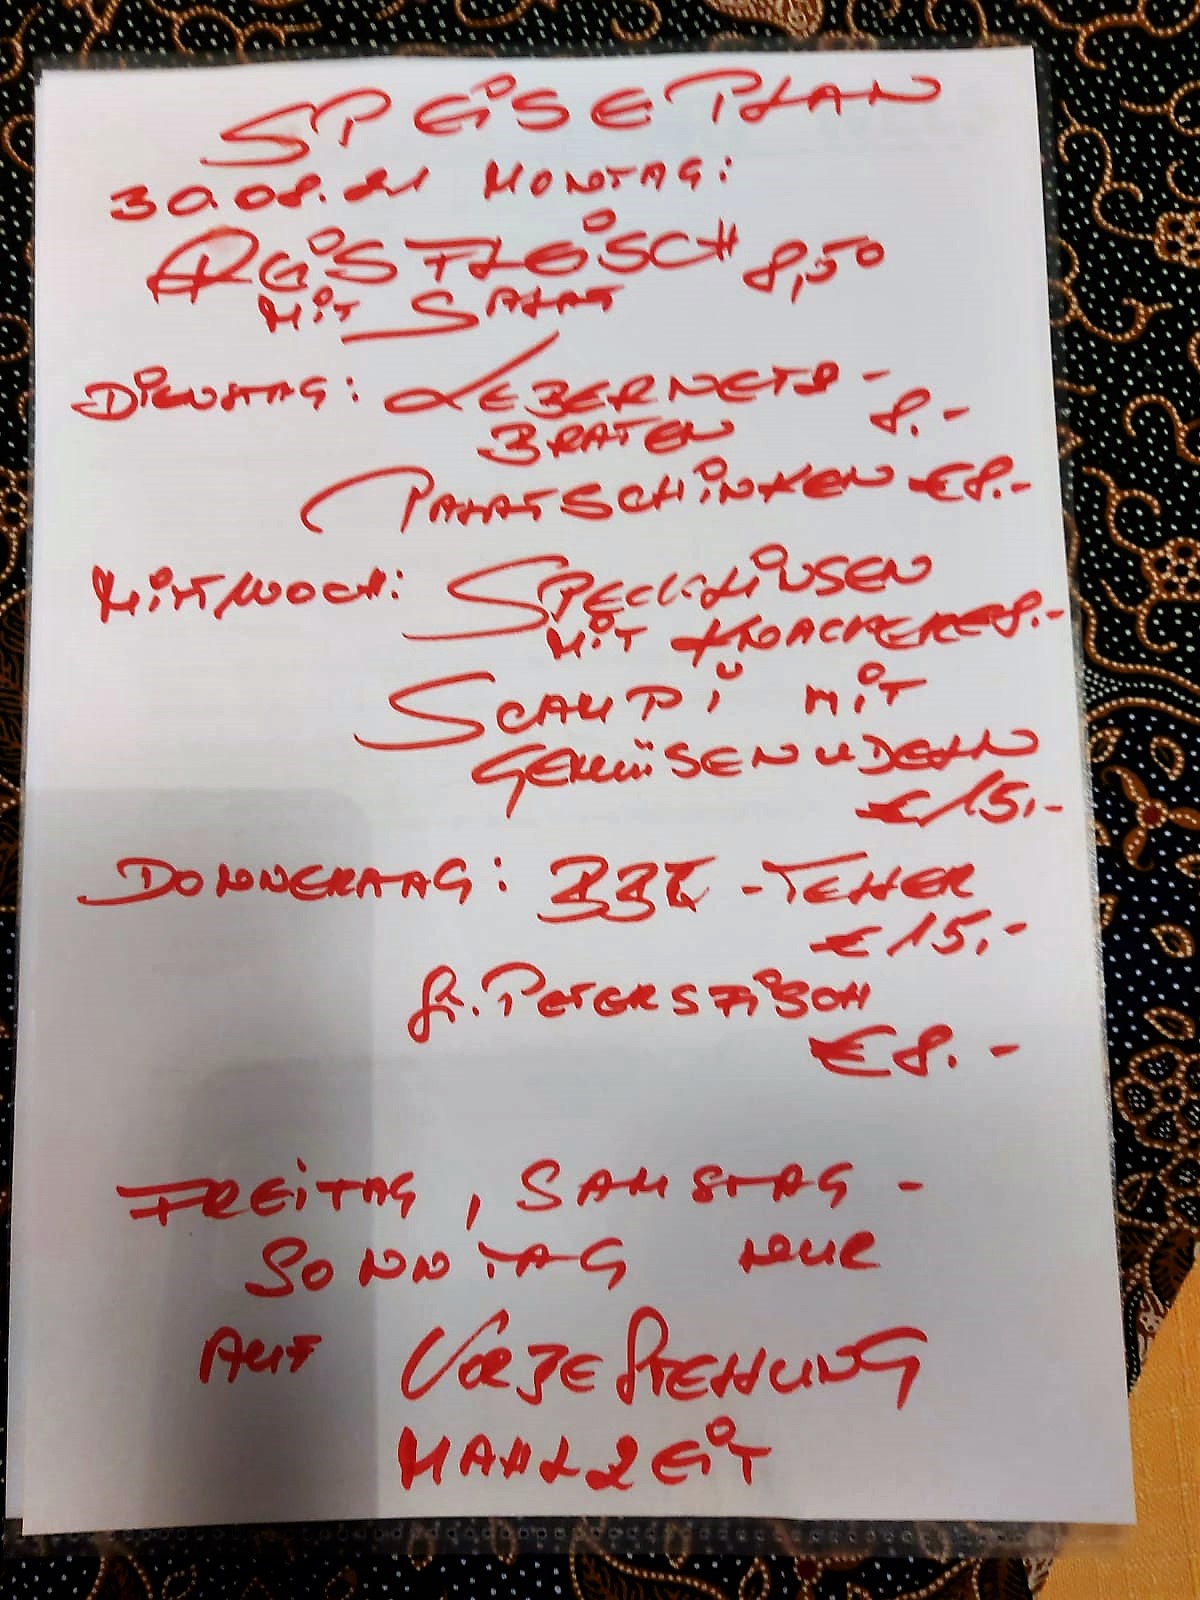 SPEISEPLAN
30.08.21 MONTAG:
REISFLEISCH 8,50
MIT SALAT
DIENSTAG: LEBERNETZ- 8.-
BRATEN
PALATSCHINKEN €8.-
MITTWOCH: SPECKLINSEN
MIT KNACKER €8.-
SCAMPI MIT
GEMÜSENUDELN
€15.-
DONNERTAG: BBQ-TELLER
€15.-
St. PETERSFISCH
€8.-
FREITAG, SAMSTAG-
SONNTAG NUR
AUF VORBESTELLUNG
MAHLZEIT